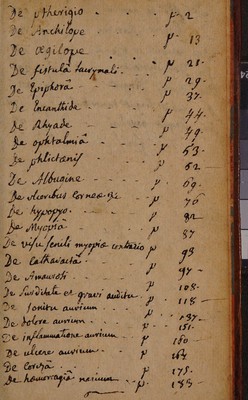 De pterigio . . . p. 2
De Anchilope . . . p. 13
De Ægilope .
De fistulâ lacrymali . . p. 21.
De Epiphora . . . p. 29.
De Encanthide . . p 37.
De Rhyade . . . p 44.
De ophtalmiâ . . p 49.
De phlictænis . . p 53.
De Albugine . . p 62.
De ulceribus corneæ &c p 69.
De Hypopyo . . . p 76
De Myopia . . p 82
De visu senili myopiæ contrario p 87
De Catharacta . . . p 93
De Amaurosi . . p 97
De Surditate et gravi auditu . . p 108.
De sonitu aurium . . p 118
De dolore aurium . . . p 137.
De inflammatione aurium . p 151.
De ulcere aurium . . . p 160
De Coryzâ . . . p 175.
De hæmorragiâ narium . . p 183